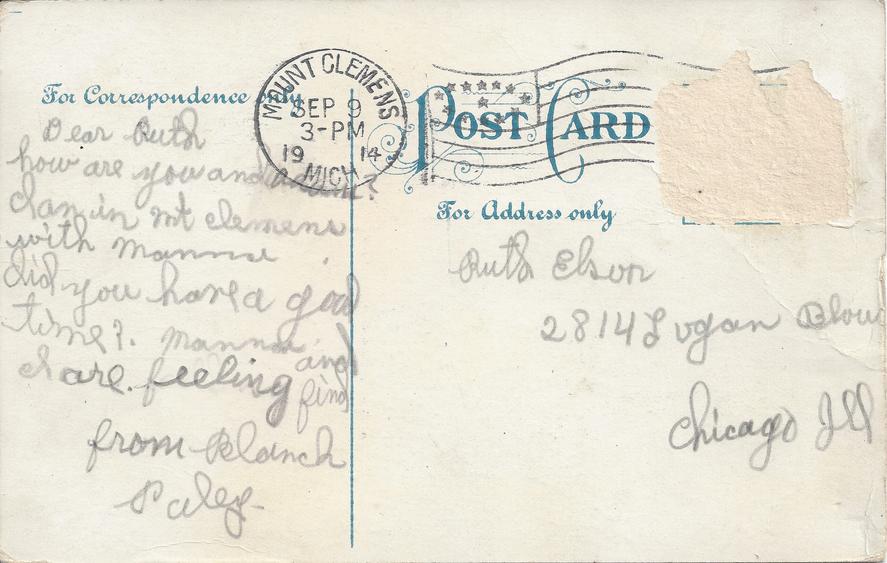 For Correspondence only
MOUNT CLEMENS
SEP 9
3-PM
1914
MICH
POST CARD
For Address only
Dear Ruth
how are you and
I am in mt clemens
with mamma
did you have a good
time? mamma and
I are feeling find
from Blanch
Paley
Ruth Elson
2814 Logan Blou
Chicago Ill